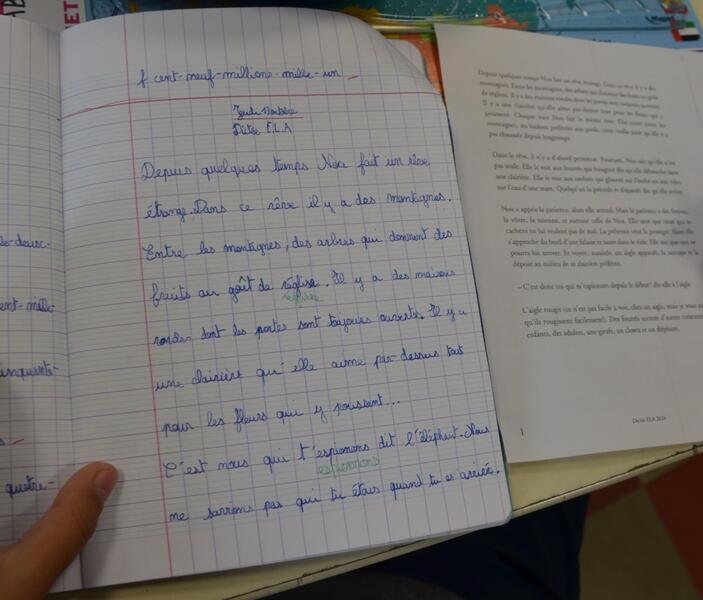 f cent-neuf-millions-mille-un
Dictée E.L.A
Depuis quelques temps Noa fait un rêve
étrange. Dans ce rêve il y a des montagnes.
Entre les montagnes, des arbres qui donnent des
fruits au goût de réglise. Il y a des maisons
réglisse
rondes dont les portes sont toujours ouverte. Il y a
une clairière qu'elle aime par-dessus tout
pour les fleurs qui y poussent...
C'est nous qui t'espionnons dit l'éléphant. Nous
espionnons
ne sarrions pas qui tu étais quand tu es arrivé.
le-deux-
cent-mille
inquante-
quatre-
Depuis quelques temps Noa fait un rêve étrange. Dans ce rêve, il y a des
montagnes. Entre les montagnes, des arbres qui donnent des fruits au goût
de réglisse. Il y a des maisons rondes dont les portes sont toujours ouvertes.
Il y a une clairière qu'elle aime par-dessus tout pour les fleurs qui y
poussent. Chaque nuit Noa fait le même rêve. Elle court entre les
montagnes, ses baskets préférées aux pieds, cette vieille paire qu'elle n'a
pas chaussée depuis longtemps.
Dans le rêve, il n'y a d'abord personne. Pourtant, Noa sait qu'elle n'est
pas seule. Elle le voit aux buissons qui bougent dès qu'elle débouche dans
une clairière. Elle le voit aux ombres qui glissent sur l'herbe ou aux rides
sur l'eau d'une mare. Quelqu'un la précède et disparaît dès qu'elle arrive.
Noa a appris la patience, alors elle attend. Mais la patience a des limites,
la vôtre, la mienne, et surtout celle de Noa. Elle sent que ceux qui se
cachent ne lui veulent pas de mal. La présence veut la protéger. Alors elle
s'approche du bord d'une falaise et saute dans le vide. Elle sait que rien ne
pourra lui arriver. Et voyez : aussitôt, un aigle apparaît, la rattrape et la
dépose au milieu de sa clairière préférée.
– C'est donc toi qui m'espionnes depuis le début! dit-elle à l'aigle.
L'aigle rougit (ce n'est pas facile à voir, chez un aigle, mais je vous
qu'ils rougissent facilement). Des fourrés sortent d'autres
enfants, des adultes, une girafe, un clown et un éléphant.
1
Dictée ELA 2024